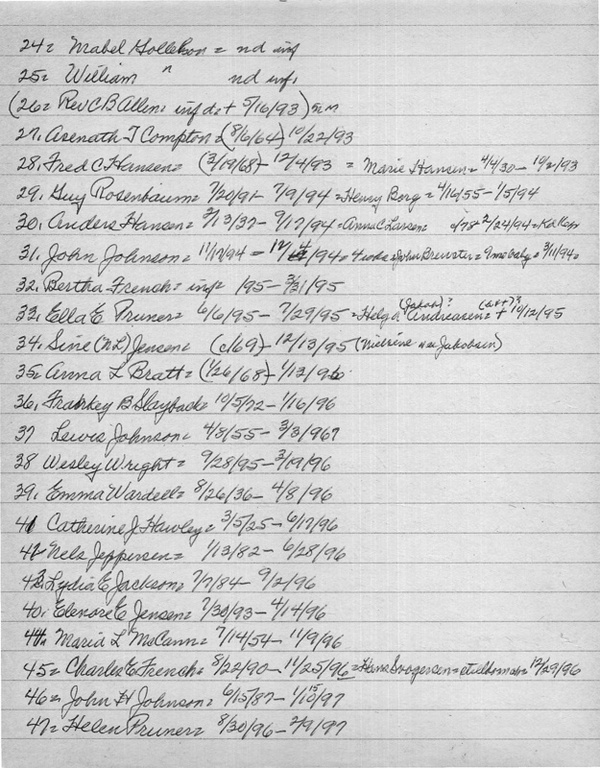 24= Mabel Hollekson = nd inf
25= William " nd inf.
(26= Rev C B Allen: inf d.t 5/16/93)
27. Asenath T Compton = (8/6/64) 10/22/93
28. Fred C Hansen= (3/19/68)- 12/4/93 = Marie Hansen= 4/4/30- 10/2/93
29. Guy Rosenbaum= 7/20/91- 7/9/94 =Henry Borg= 4/16/55- 1/5/94
30. Anders Hansen= 3/13/37- 9/17/94 =Anna C Larsen 2/24/94=
31. John Johnson= 11/17/94 = /94= 4 weeks John Brewster= 9mo baby= 3/11/94=
32. Bertha French= inf= /95- /95
33. Ella E Pruner= 6/6/95- 7/29/95 =Helga (Jakob)? Andreasen= + 10/12/95
34. Sine (N L) Jensen= (c/69)- 12/13/95 (Nielsine nee Jakobsen)
35= Anna L Bratt= (1/26/68)- 1/12/96
36. Frankey B Slayback= 10/5/72- 1/16/96
37 Lewis Johnson= 4/8/55- 3/3/96?
38 Wesley Wright= 9/28/95- 3/19/96
39. Emma Wardell= 8/26/36- 4/8/96
41 Catherine J Hawley= 3/5/25- 6/17/96
42 Nels Jeppersen= 1/13/82- 6/28/96
43. Lydia E Jackson= 7/7/84- 9/2/96
40. Elenore E Jensen= 7/30/93- 4/14/96
44. Maria L McCann= 7/14/54- 11/9/96
45= Charles E French= 8/22/90- 11/25/96 =Hans 12/29/96
46= John H Johnson= 6/15/87- 1/10/97
47= Helen Pruner= 8/30/96- 2/9/97